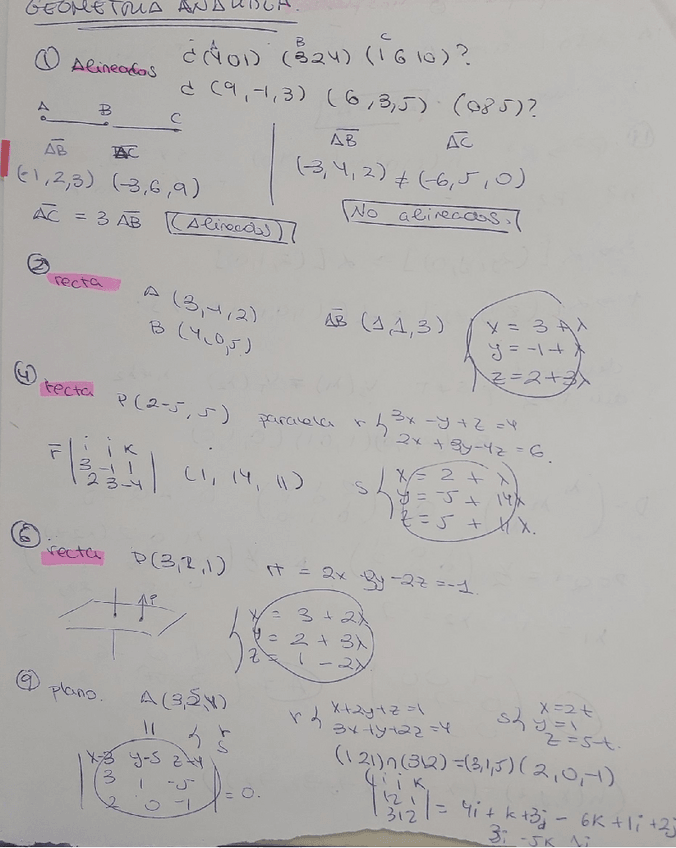 GEOMETRIA ANALITICA.
① Alineados ¿(401) (324) (1610)?
A B C
¿(9,-1,3) (6,3,5) (085)?
A B C
AB AC
(-1,2,3) (-3,6,9)
AC = 3 AB (Alineados)
AB AC
(-3,4,2) ≠ (-6,5,0)
No alineados.
② recta A (3,-1,2)
B (4,0,5)
AB (1,1,3)
x = 3+λ
y = -1+λ
z = 2+3λ
④ recta P(2-5,5) paralela r { 3x-y+z=4
2x+3y-4z=6.
r | i j k
3 -1 1
2 3 -4 | (1, 14, 11)
s { x = 2 + λ
y = -5 + 14λ
z = 5 + 11λ.
⑥ recta P(3,2,1) π = 2x 3y-2z=-1.
P
x = 3 + 2λ
y = 2 + 3λ
z = 1 - 2λ
⑨ plano. A(3,5,4)
|| { r
s
r { x+2y+z=1
3x+y+2z=4
s { x=2t
y=1
z=5-t.
(121)∧(312)=(3,1,5)(2,0,-1)
| x-3 y-5 z-4
3 1 -5
2 0 -1 | = 0.
| i j k
1 2 1
3 1 2 | = 4i + k + 3j - 6k + 1i + 2j
3i -5k